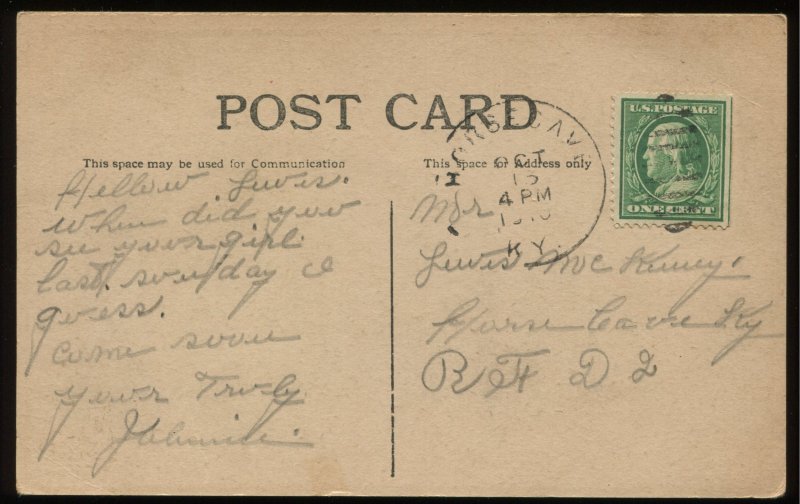 POST CARD
This space may be used for Communication
This space for Address only
HORSE CAVE
OCT
13
4 PM
1910
KY.
U.S. POSTAGE
ONE CENT
Hellow Lewis.
When did you
see your girl
last. sunday I
guess.
come soon
your Truly
Johnnie.
Mr
Lewis McKinney.
Horse Cave Ky
R F D 2